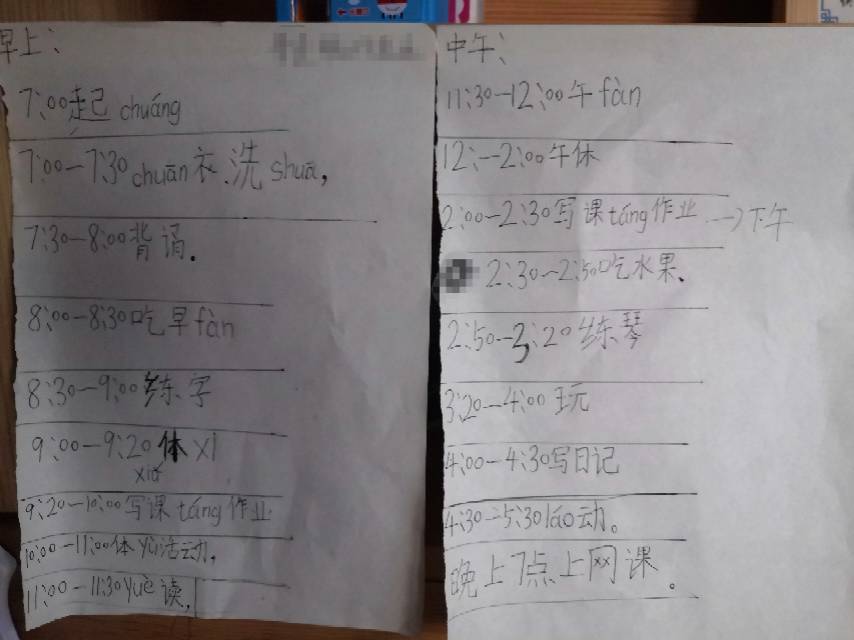 早上:
7:00起chuáng
7:00—7:30chuān衣.洗shuā,
7:30—8:00背诵.
8:00—8:30吃早fàn
8:30—9:00练字
9:00—9:20休xī
xiū
9:20—10:00写课táng作业
10:00—11:00体yù活动,
11:00—11:30yuè读,
中午:
11:30—12:00午fàn
12:—2:00午休
2:00—2:30写课táng作业-->下午
2:30—2:50吃水果、
2:50—3:20练琴
3:20—4:00玩
4:00—4:30写日记
4:30—5:30láo动。
晚上7点上网课。